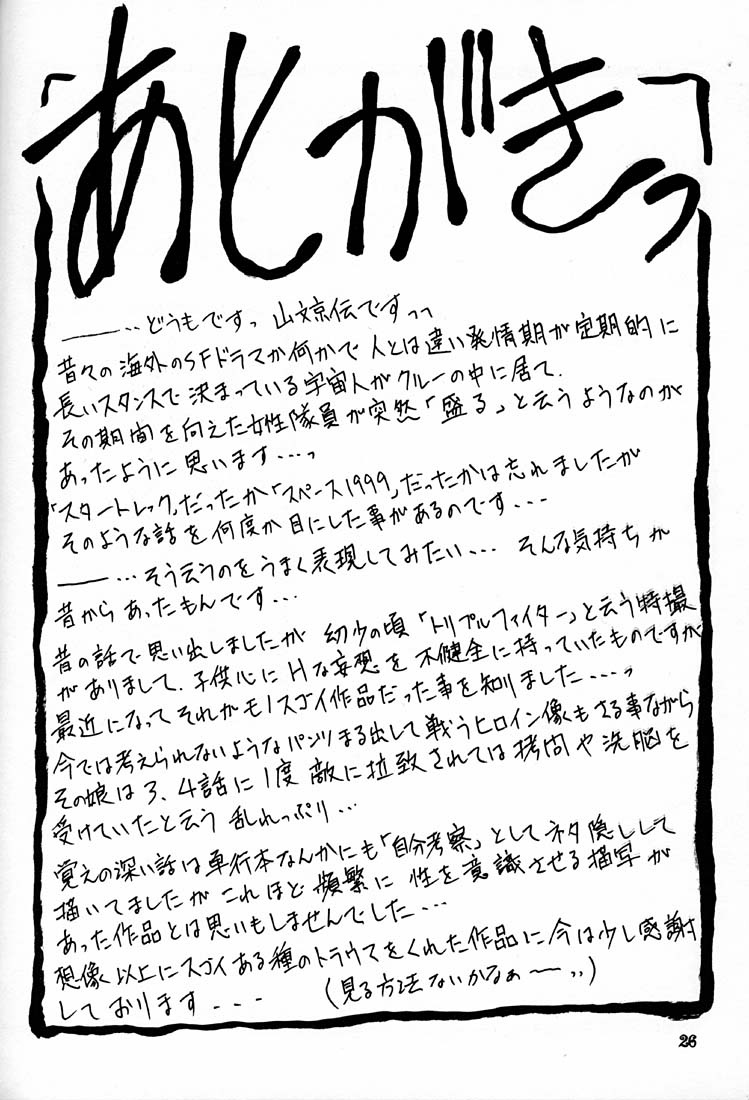 「あとがきっ」
———‥どうもですっ 山文京伝ですっっ
昔々の海外のSFドラマか何かで人とは違い発情期が定期的に
長いスタンスで決まっている宇宙人がクルーの中に居て、
その期間を向えた女性隊員が突然「盛る」と云うようなのが
あったように思います‥‥っ
「スタートレック」だったか「スペース1999」だったかは忘れましたが
そのような話を何度か目にした事があるのです‥‥
———‥‥そう云うのをうまく表現してみたい‥‥ そんな気持ちが
昔からあったもんです‥‥
昔の話で思い出しましたが 幼少の頃「トリプルファイター」と云う特撮
がありまして、子供心にHな妄想を不健全に持っていたものですが
最近になってそれがモノスゴイ作品だった事を知りました‥‥っ
今では考えられないようなパンツまる出しで戦うヒロイン像もさる事ながら
その娘は3、4話に1度 敵に拉致されては拷問や洗脳を
受けていたと云う 乱れっぷり‥‥
覚えの深い話は単行本なんかにも「自分考察」としてネタ隠しして
描いてましたが これほど頻繁に 性を意識させる描写が
あった作品とは思いもしませんでした‥‥
想像以上にスゴイある種のトラウマをくれた作品に今は少し感謝
しております‥‥ (見る方法ないかなぁ——っっ)
26